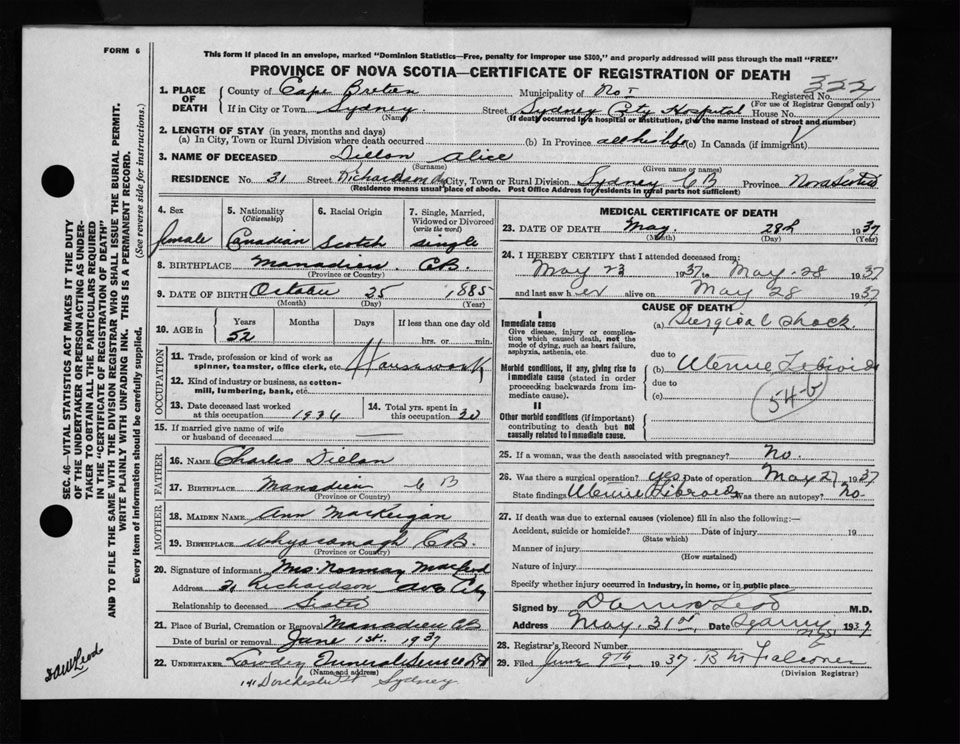 FORM 6
This form if placed in an envelope, marked "Dominion Statistics—Free, penalty for improper use $300," and properly addressed will pass through the mail "FREE"
PROVINCE OF NOVA SCOTIA—CERTIFICATE OF REGISTRATION OF DEATH
322
1. PLACE OF DEATH County of Cape Breton Municipality of No 1 Registered No. (For use of Registrar General only)
If in City or Town Sydney (Name) Street Sydney City Hospital House No.
(If death occurred in a hospital or institution, give the name instead of street and number)
2. LENGTH OF STAY (in years, months and days)
(a) In City, Town or Rural Division where death occurred (b) In Province all his life (c) In Canada (if immigrant)
3. NAME OF DECEASED Dillon Alice
(Surname) (Given name or names)
RESIDENCE No. 31 Street Richardson Av City, Town or Rural Division Sydney CB Province Nova Scotia
(Residence means usual place of abode. Post Office Address for residents in rural parts not sufficient)
4. Sex female
5. Nationality (Citizenship) Canadian
6. Racial Origin Scotch
7. Single, Married, Widowed or Divorced (write the word) single
8. BIRTHPLACE Manadieu. CB.
(Province or Country)
9. DATE OF BIRTH October 25 1885
(Month) (Day) (Year)
10. AGE in Years 52 Months Days If less than one day old hrs. or min.
OCCUPATION
11. Trade, profession or kind of work as spinner, teamster, office clerk, etc. Housework
12. Kind of industry or business, as cotton-mill, lumbering, bank, etc.
13. Date deceased last worked at this occupation 1936
14. Total yrs. spent in this occupation 20
15. If married give name of wife or husband of deceased —
FATHER
16. NAME Charles Dillon
17. BIRTHPLACE Manadieu C B
(Province or Country)
MOTHER
18. MAIDEN NAME Ann MacKeigan
19. BIRTHPLACE Whycocomagh CB.
(Province or Country)
20. Signature of informant Mrs. Norman MacLeod
Address 31 Richardson Ave City
Relationship to deceased Sister
21. Place of Burial, Cremation or Removal Manadieu CB
Date of burial or removal June 1st. 1937
22. UNDERTAKER Lowden Funeral Service Ltd
(Name and address)
141 Dorchester St Sydney.
MEDICAL CERTIFICATE OF DEATH
23. DATE OF DEATH May. 28th 1937
(Month) (Day) (Year)
24. I HEREBY CERTIFY that I attended deceased from:
May 23 1937 to May. 28 1937
and last saw her alive on May 28 1937
CAUSE OF DEATH
I
Immediate cause
Give disease, injury or complication which caused death, not the mode of dying, such as heart failure, asphyxia, asthenia, etc.
(a) Surgical Shock
due to
Morbid conditions, if any, giving rise to immediate cause (stated in order proceeding backwards from immediate cause).
(b) Uterine Fibroids
due to
(c)
54-b
II
Other morbid conditions (if important) contributing to death but not causally related to immediate cause.
25. If a woman, was the death associated with pregnancy? No.
26. Was there a surgical operation? yes Date of operation May 27 1937
State findings Uterine Fibroids Was there an autopsy? No
27. If death was due to external causes (violence) fill in also the following:—
Accident, suicide or homicide? Date of injury 19
(State which)
Manner of injury
(How sustained)
Nature of injury
Specify whether injury occurred in industry, in home, or in public place
Signed by M.D.
Address May. 31st, Date 1937
28. Registrar's Record Number
29. Filed June 9th, 1937
(Division Registrar)
SEC. 46—VITAL STATISTICS ACT MAKES IT THE DUTY
OF THE UNDERTAKER OR PERSON ACTING AS UNDER-
TAKER TO OBTAIN ALL THE PARTICULARS REQUIRED
IN THE "CERTIFICATE OF REGISTRATION OF DEATH"
AND TO FILE THE SAME WITH THE DIVISION REGISTRAR WHO SHALL ISSUE THE BURIAL PERMIT.
WRITE PLAINLY WITH UNFADING INK. THIS IS A PERMANENT RECORD.
Every item of information should be carefully supplied. (See reverse side for instructions.)